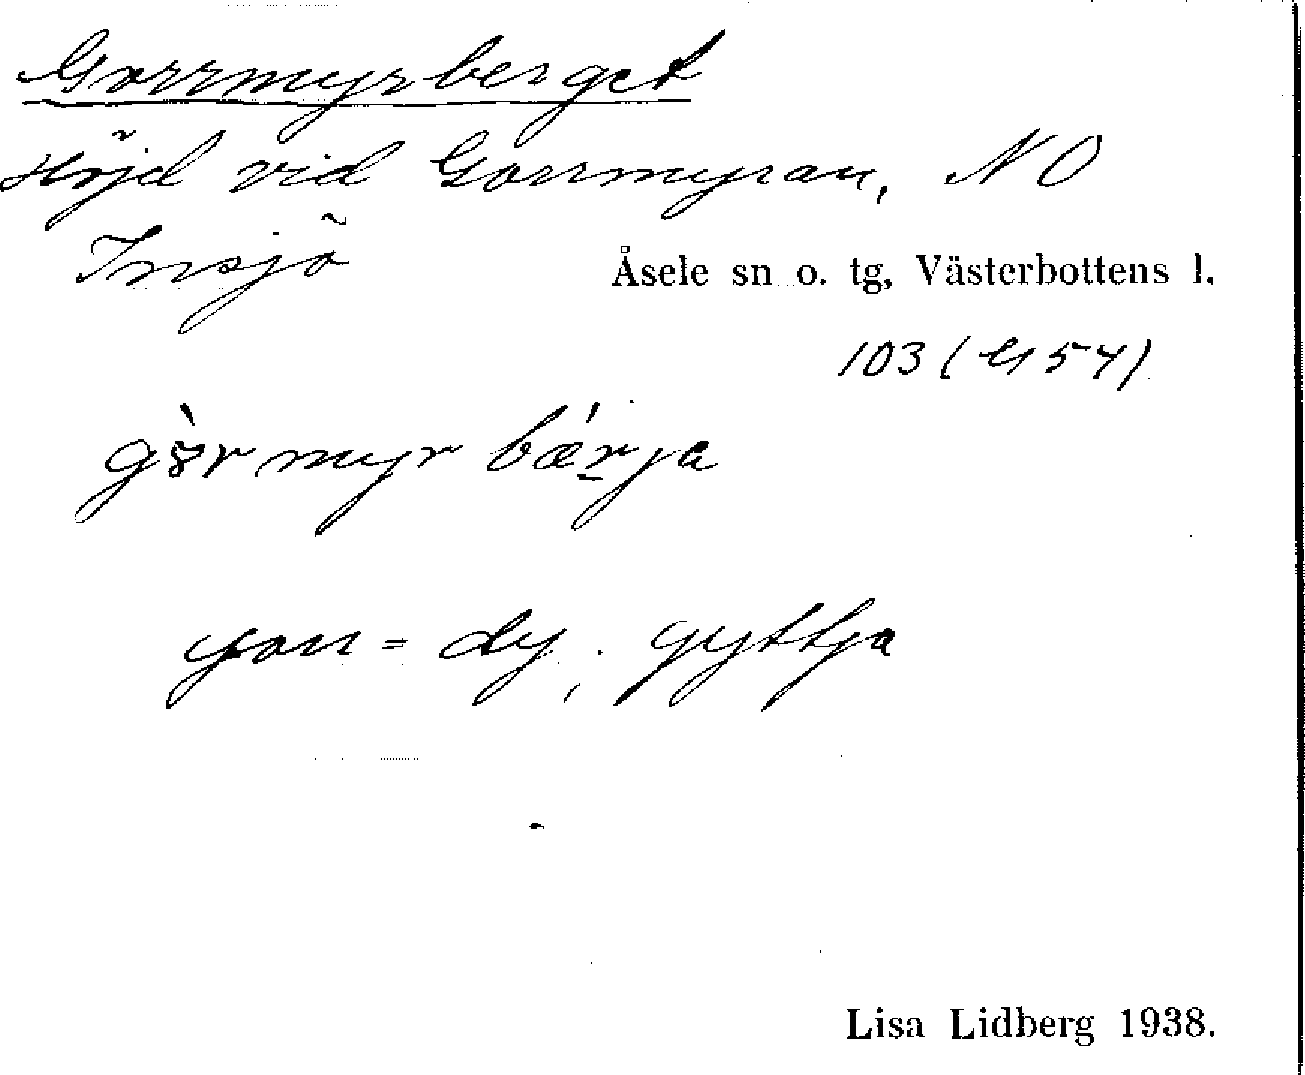 Gorrmyrberget
Höjd vid Gorrmyran, NO
Insjö
Åsele sn o. tg, Västerbottens l.
103 (G 54)
gòrmyr bǽrja
gorr = dy, gyttja
Lisa Lidberg 1938.